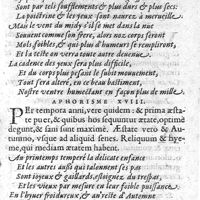 Sont par tels soufflements & plus durs & plus secs:
La poictrine & les yeux sont naurez à merveille,
Mais le vent du midy s'il se met dans la nue
Souvent comme son frere, alors nos corps seront
Mols, foibles, & qui plus d'humeurs se rempliront,
Et la teste on verra toute notre demeure
La cadence des yeux sera plus difficile,
Et du corps plus pesant le subit mouvement,
Tout sera alteré, en ce beau bastiment,
Nostre ventre humectant en façon plus de mille
APHORISME XVIII.
Per tempora anni, vere quidem: & prima æsta-
te pueri, & quibus hos sequuntur ætate, optimè
degunt, & sani sunt maximè. Æstate verò & Au-
tumno, usque ad aliquid senes. Reliquum & hye-
me, qui mediam ætatem habent.
Au printemps temperé la delicate enfance
Et les autres aussi qui talonnent ses pas
Sont joyeux & gaillards, esloignez du trespas,
Et les vieux par mesure en leur foible puissance
En l'hyver froidureux, & au reste d'Automne